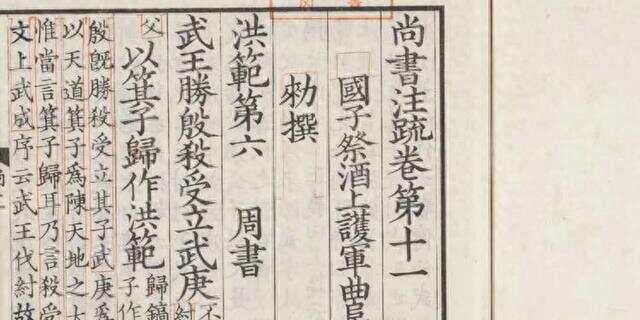 尚書注疏卷第十一
國子祭酒上護軍曲阜
勑撰
洪範第六 周書
武王勝殷殺受立武庚不紂
父以箕子歸作洪範歸鎬子作
殷旣勝殺受立其子武庚爲
以天道箕子爲陳天地之大
惟當言箕子歸耳乃言殺受
文上武成序云武王伐紂故